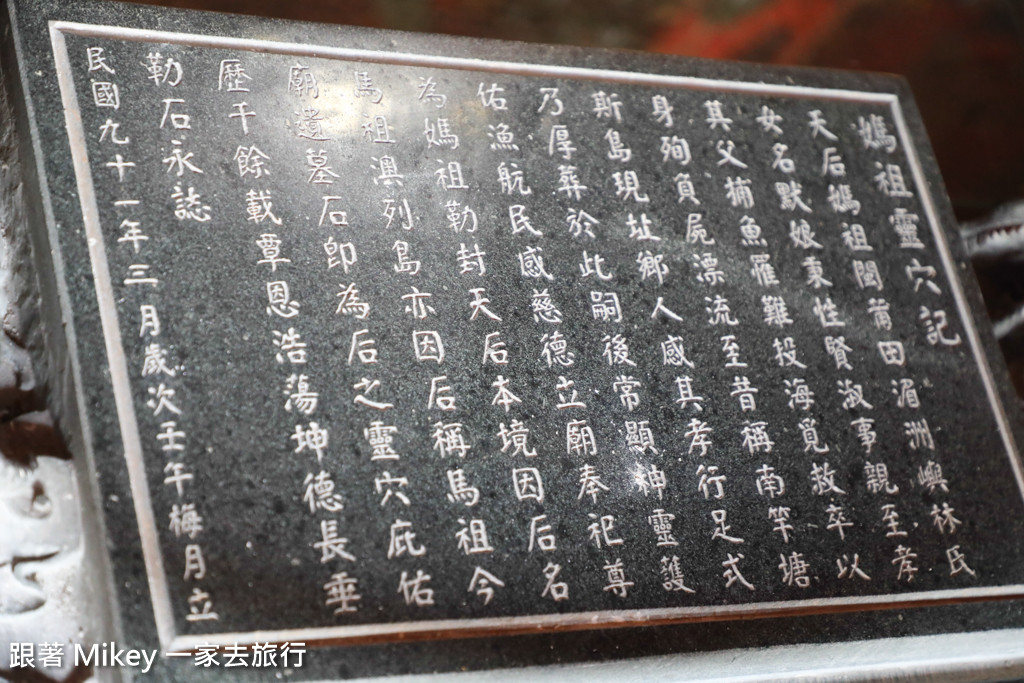 媽祖靈穴記
天后媽祖閩莆田湄洲嶼林氏
女名默娘秉性賢淑事親至孝
其父捕魚罹難投海覓救卒以
身殉負屍漂流至昔稱南竿塘
斯島現址鄉人感其孝行足式
乃厚葬於此嗣後常顯神靈護
佑漁航民感慈德立廟奉祀尊
為媽祖勒封天后本境因后名
馬祖澳列島亦因后稱馬祖今
廟遺墓石即為后之靈穴庇佑
歷千餘載覃恩浩蕩坤德長垂
勒石永誌
民國九十一年三月歲次壬午梅月立
跟著 Mikey 一家去旅行